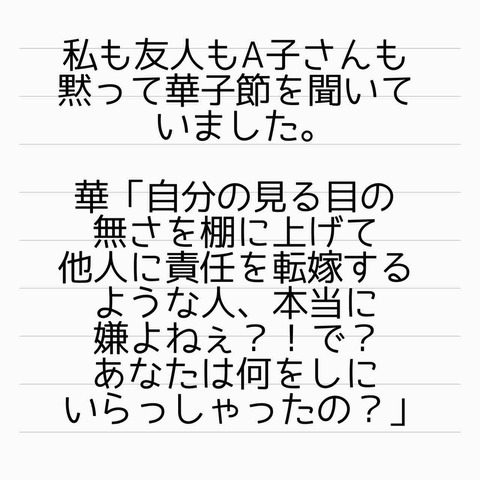 私も友人もA子さんも
黙って華子節を聞いて
いました。
華「自分の見る目の
無さを棚に上げて
他人に責任を転嫁する
ような人、本当に
嫌よねぇ？！で？
あなたは何をしに
いらっしゃったの？」